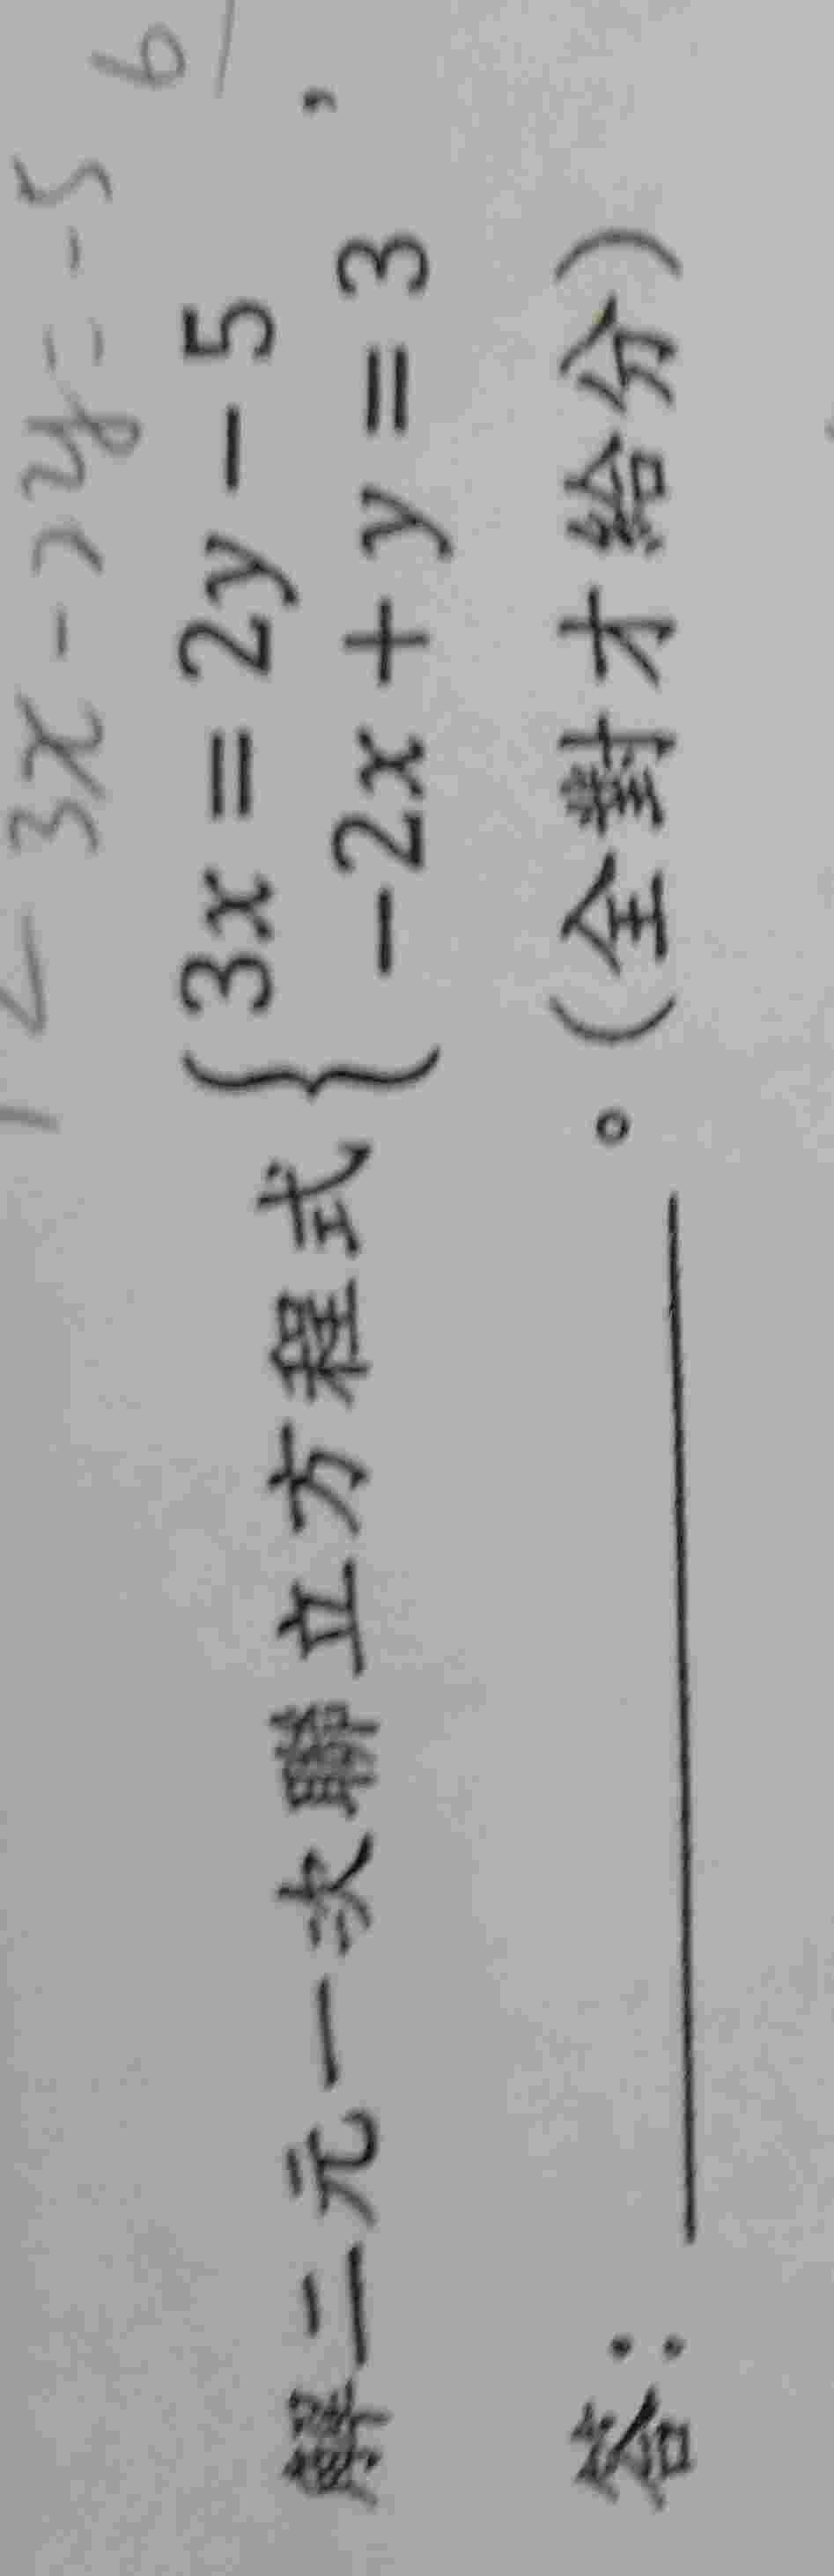 3x - 2y = -5
解二元一次聯立方程式 { 3x = 2y - 5
-2x + y = 3 ,
答:__________。(全對才給分)